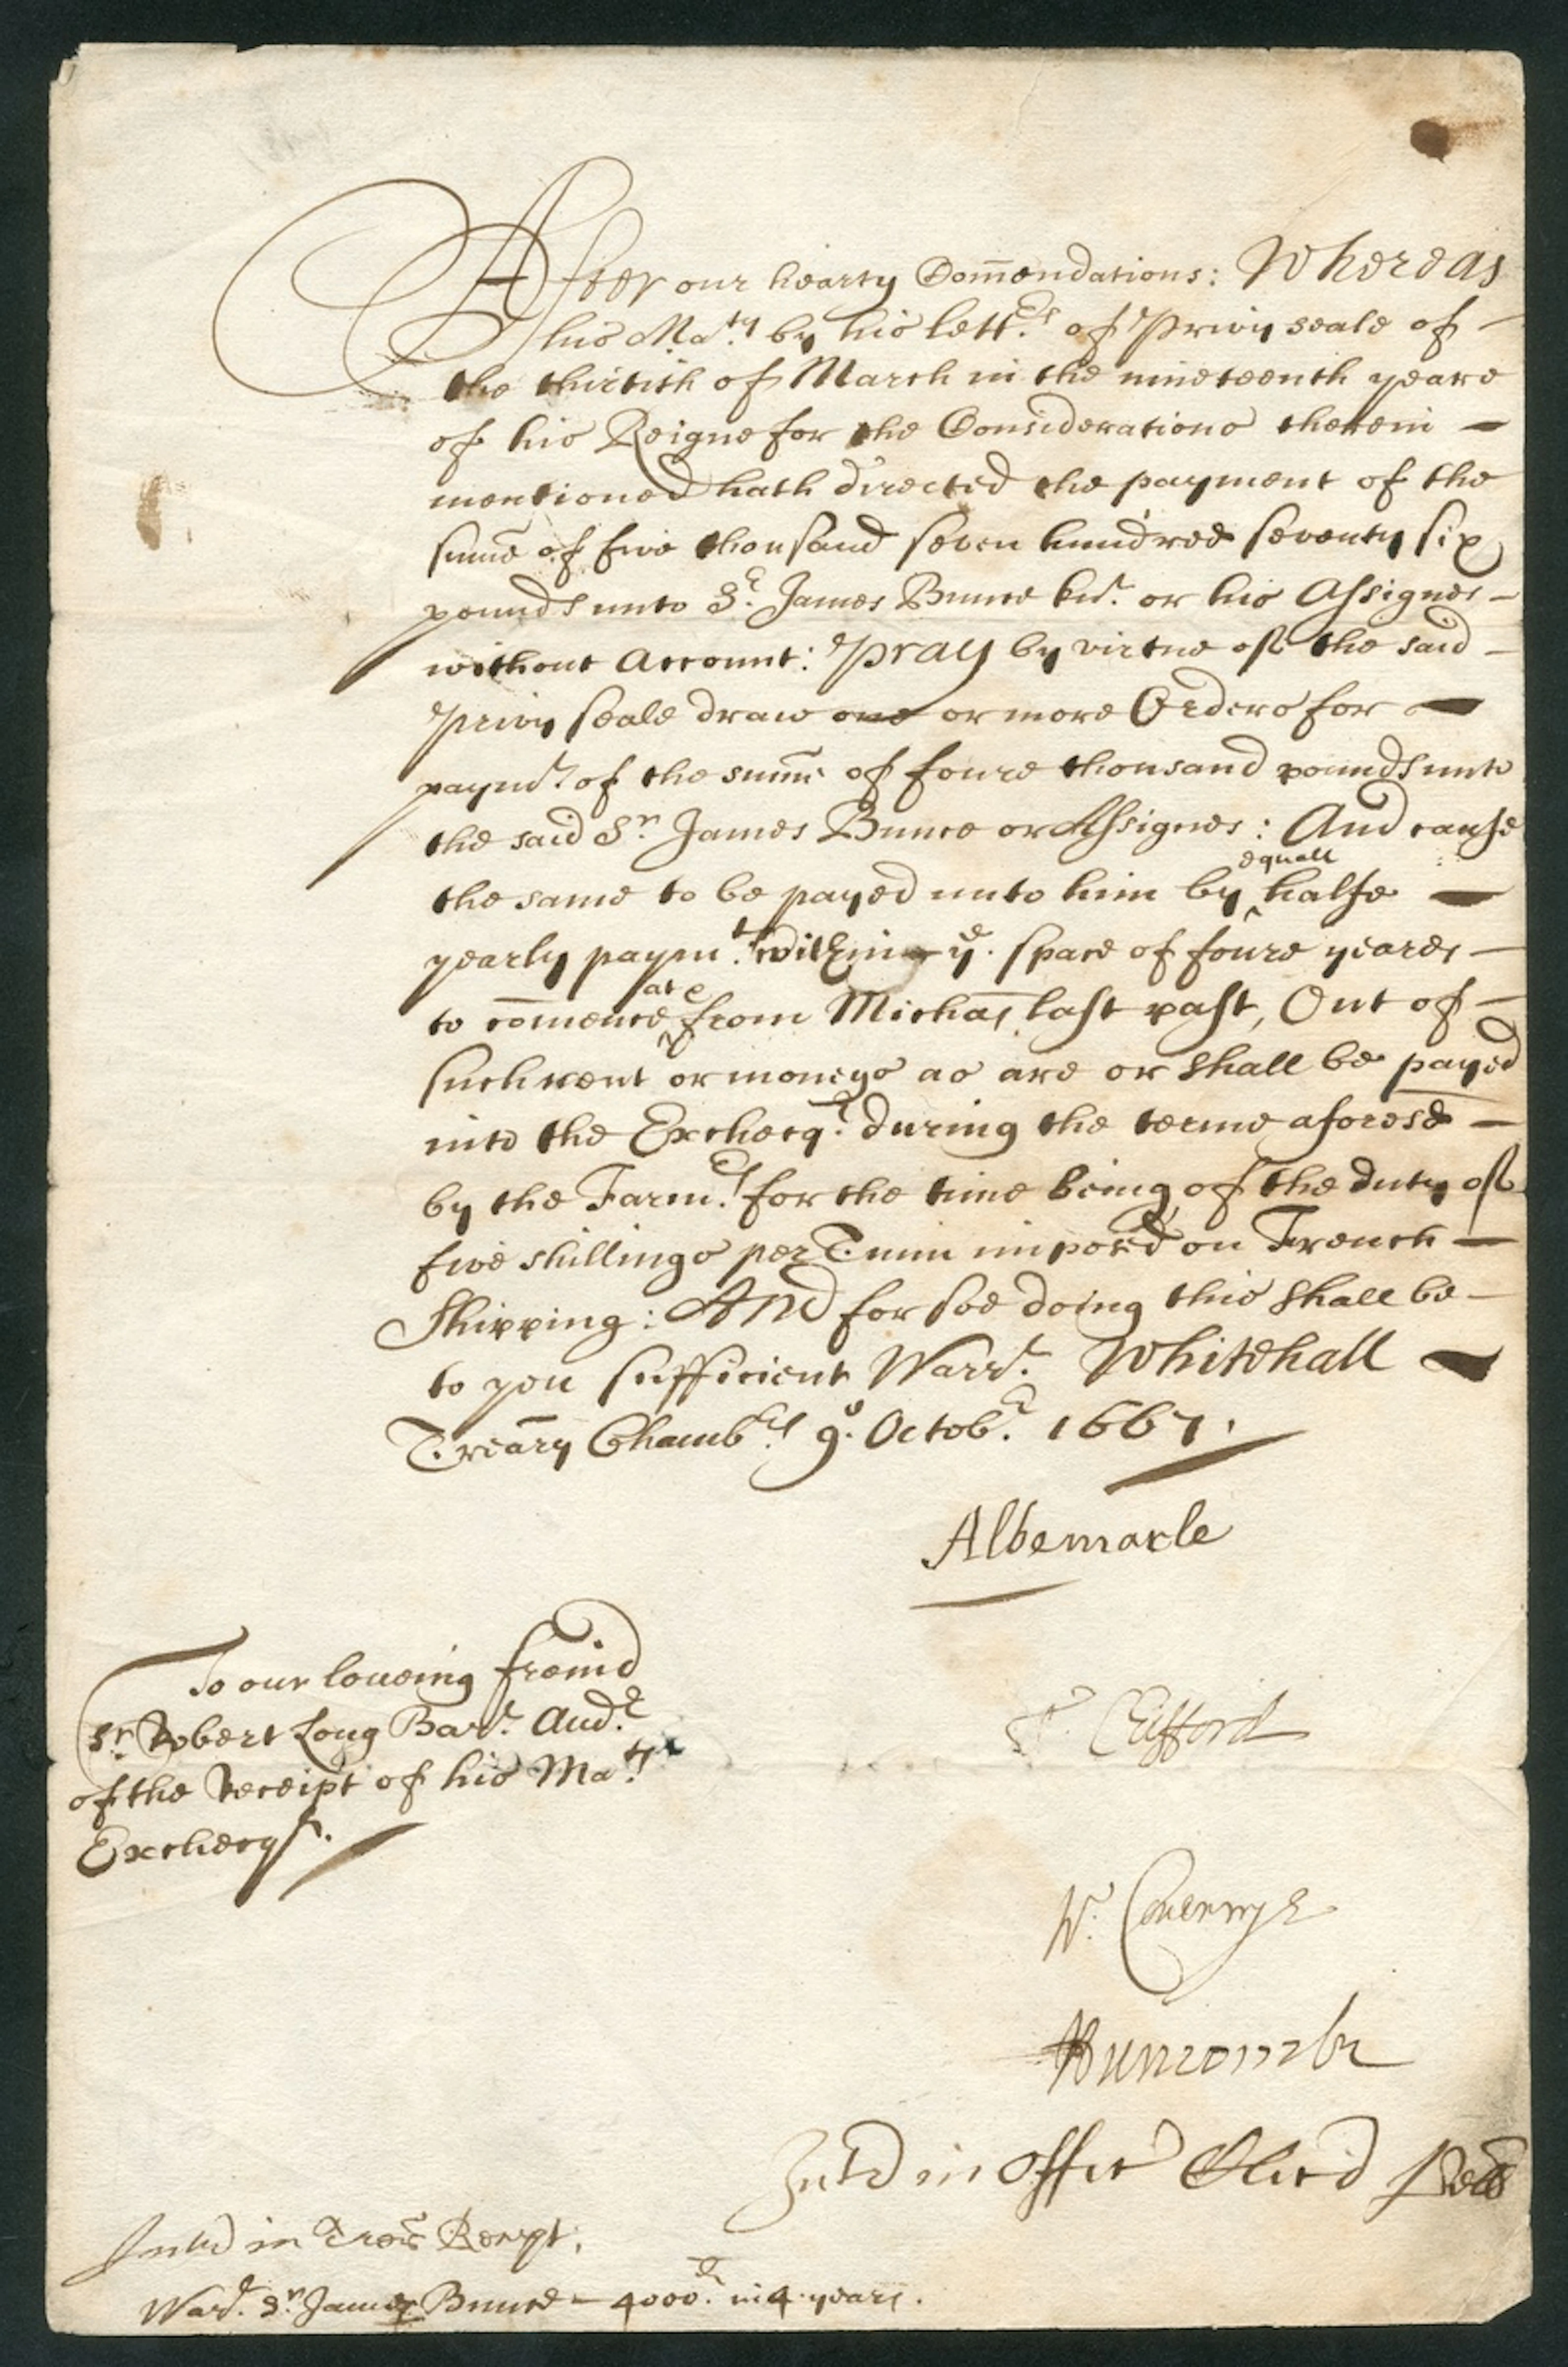 After our hearty Com̄endations: Whereas
his Ma.ty by his lett.rs of Privy seale of
the thirtith of March in the nineteenth yeare
of his Reigne for the Considerations therein
mentioned hath directed the payment of the
sum̄e of five thousand seven hundred seventy six
pounds unto Sr. James Bunce kt. or his Assignes
without Account: Pray by virtue of the said
Privy seale draw one or more Orders for
paymt. of the sum̄e of foure thousand pounds unto
the said Sr. James Bunce or Assignes: And cause
the same to be payed unto him by ^equall halfe
yearly paym.ts within ye. space of foure yeares
to com̄ence ^at & from Michās last past, Out of
such rent or moneys as are or shall be payed
into the Exchecqr. during the terme aforesd
by the Farm.rs for the time being of the duty of
five shillings per Tunn imposed on French
Shipping: And for soe doing this shall be
to you sufficient Warrt. Whitehall
Treāry Chamb.rs 9o. Octobr. 1667.
Albemarle
To our loveing freind
Sr. Robert Long Bart. Audr.
of the Receipt of his Ma.ty
Exchecqr.
T. Clifford
W. Coventrye
J Duncombe
Intd in Offic Cleri Pell
Intrd in Recpt.
Warr. Sr. James Bunce – 4000li. in 4 years.